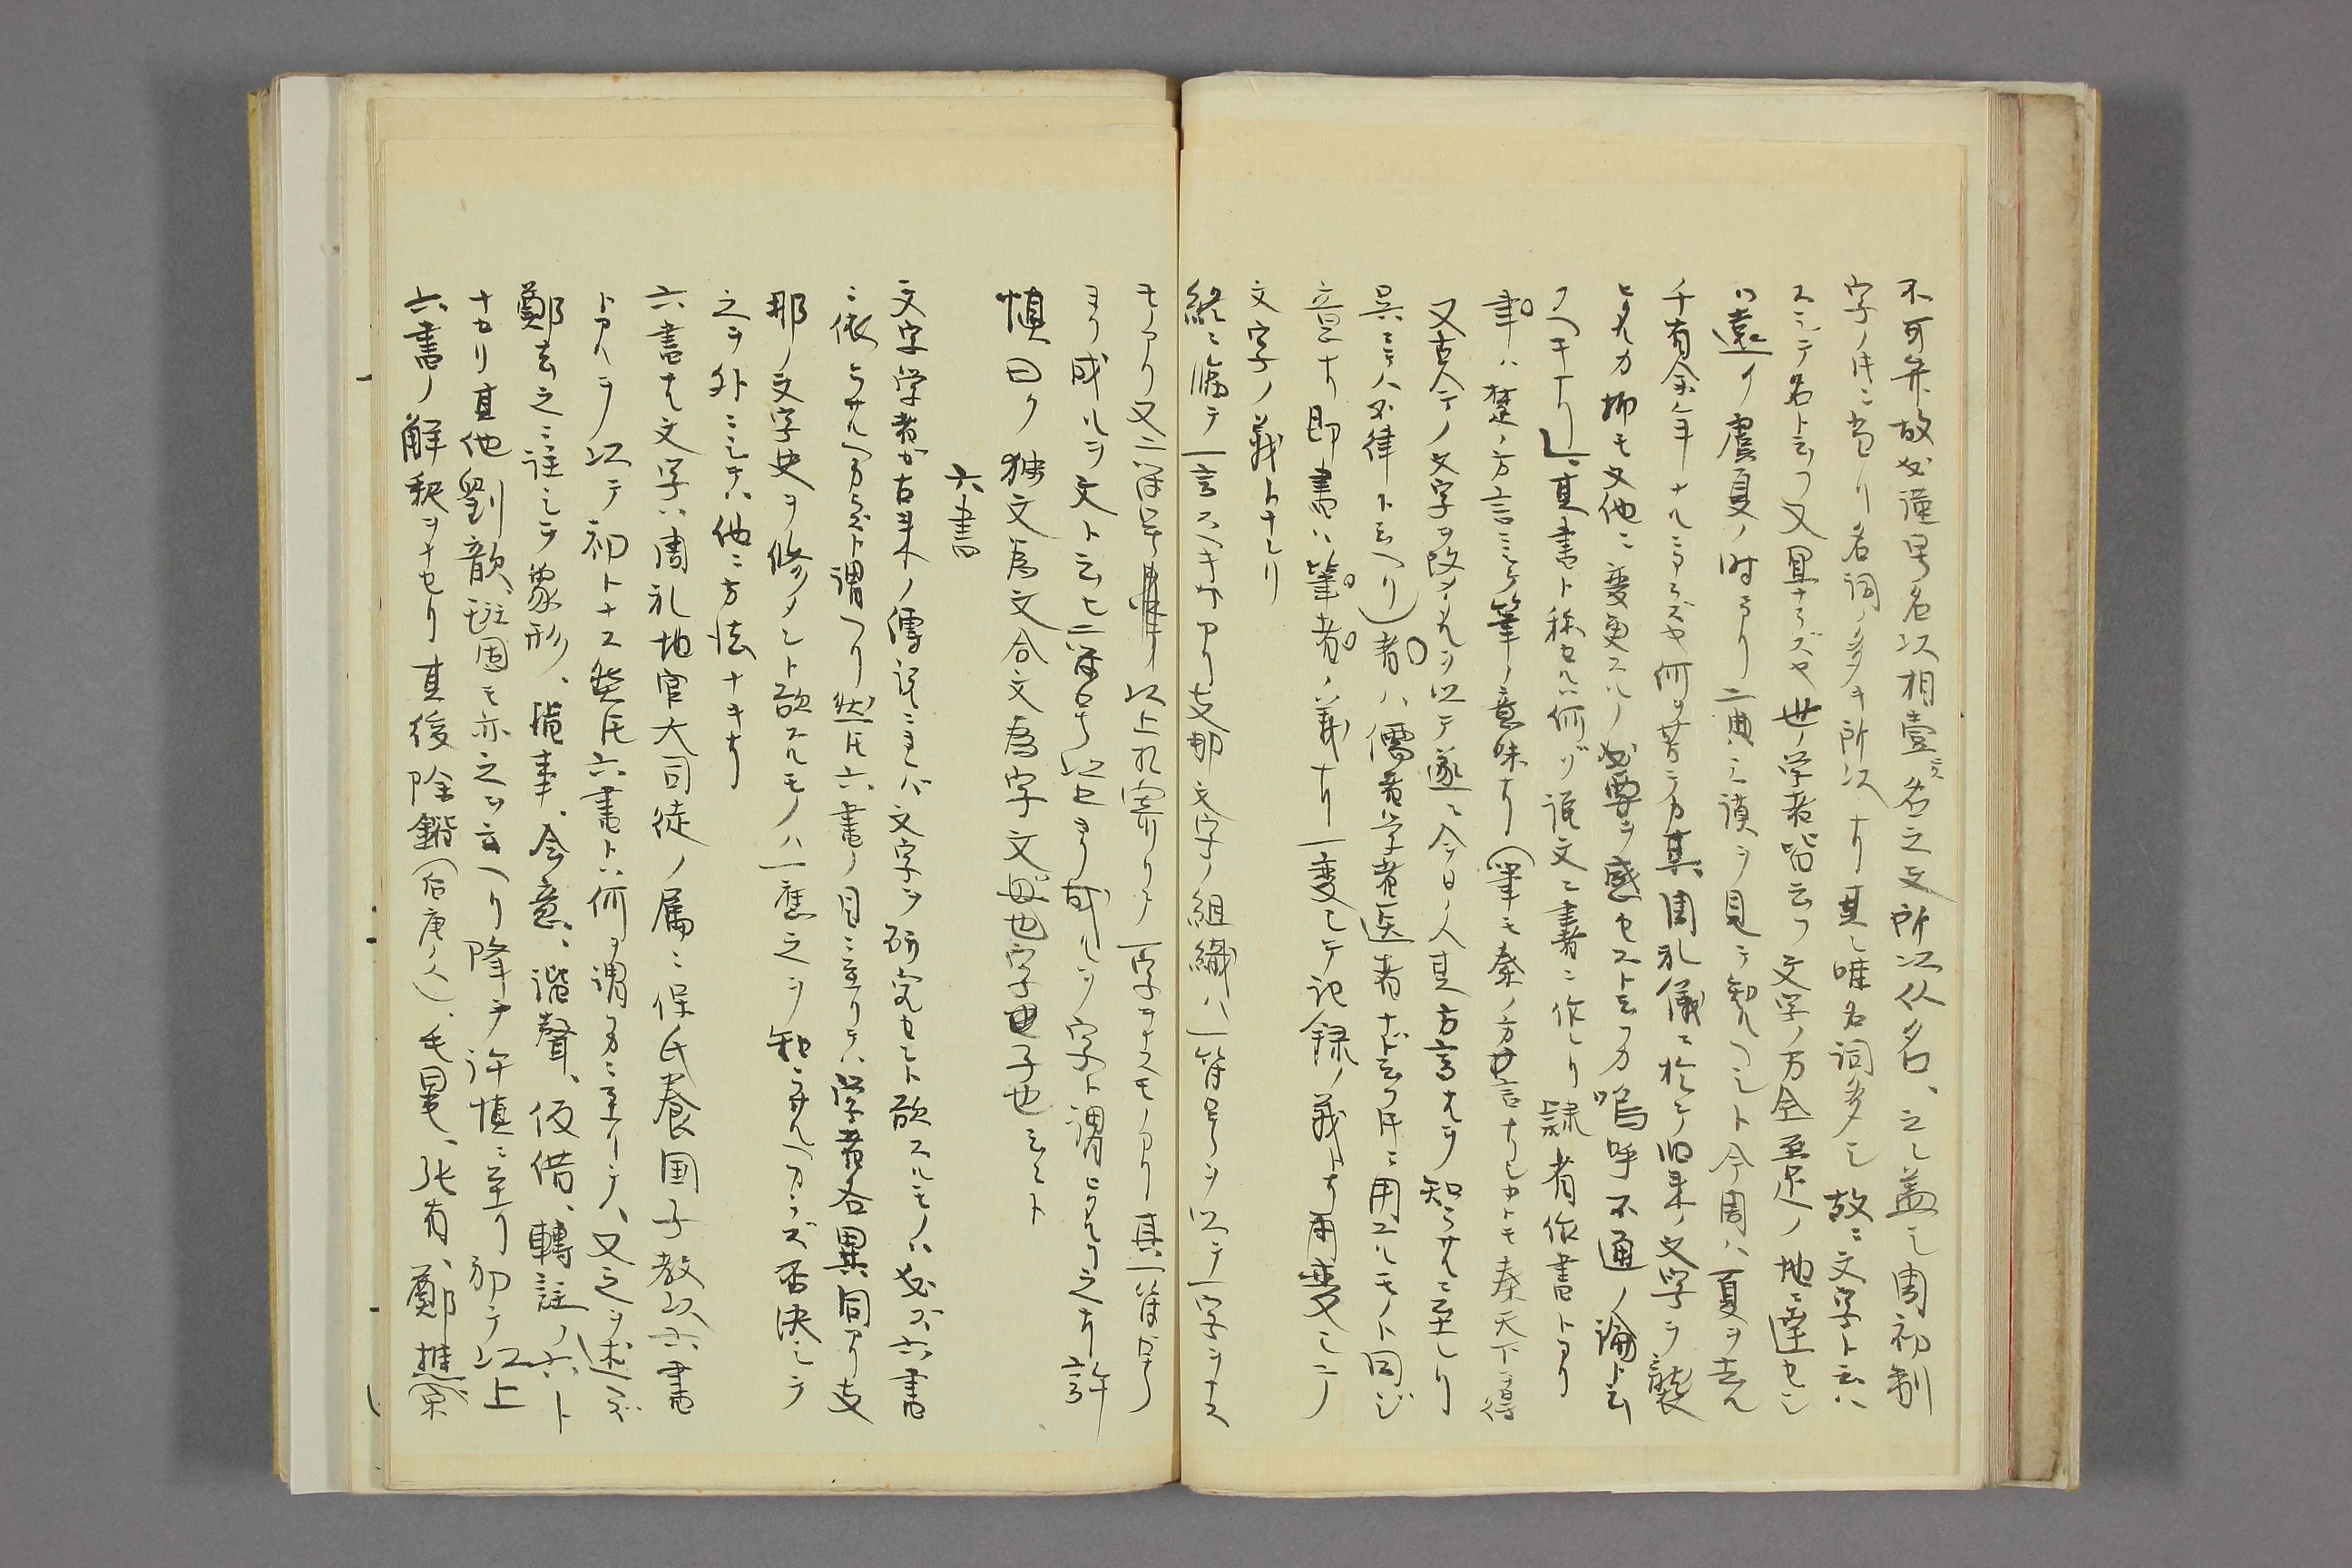 不可弁、故必謹号名以相壹、名之文所以从名、之レ蓋シ周初制
字ノ件ニ当リ名詞ノ多キ所以ナリ其レ唯名詞多シ故ニ文字ト云ハ
スシテ名ト云フ又宜ナラズヤ世ノ学者皆云フ文字ノ方全至足ノ地ニ達セシ
ハ遠ク虞夏ノ時ヨリ二典ノ謨ヲ見テ知ルヘシト今周ハ夏ヲ去ル
千有余年ナルニアラズヤ何ヲ苦テカ其周礼儀ニ於テ旧来ノ文字ヲ襲
ヒタルカ抑モ又他ニ変更スルノ必要ヲ感セスト云フカ嗚呼不通ノ論ト云
フヘキナリ」其書ト称セルハ何ゾ説文ニ書ニ作レリ隷省作書トアリ
聿ハ楚ノ方言ニシテ筆ノ意味ナリ（筆モ秦ノ方言ナレドモ秦天下ヲ得
又古今ノ文字ヲ改メタルヲ以テ遂ニ今日ノ人其方言ナルヲ知ラサルニ至レリ
呉ニテハ不律ト云ヘリ）者ハ儒者学者医者ナド云フ件ニ用ユルモノト同ジ
意ナリ即書ハ筆者ノ義ナリ一変シテ記録ノ義トナリ再変シテ
文字ノ義トナレリ
終ニ臨テ一言スヘキ件アリ支那文字ノ組織ハ一符号ヲ以テ一字ヲナス
モノアリ又二符号以上相寄リテ一字ヲナスモノアリ其一符号
ヨリ成ルヲ文ト云ヒ二符号以上ヨリ成ルヲ字ト謂ヒタリ之ナリ許
慎曰ク独文為文合文為字文母也字子也云々ト
六書
文字学者が古来ノ傳説ニヨレバ文字ヲ研究セント欲スルモノハ必ズ六書
ニ依ラサルヘカラズト謂ヘリ然ㇳモ六書ノ目ニ至リテハ学者各異同アリ支
那ノ文字史ヲ修メント欲スルモノハ一應之ヲ知ラサルヘカラズ否決シテ
之ヲ外ニシテハ他ニ方法ナキナリ
六書ナル文字ハ周礼地官大司徒ノ属ニ保氏養国子教以六書
トアルヲ以テ初トナス然ㇳモ六書トハ何ヲ謂フカニ至リテハ又之ヲ述ベズ
鄭玄之ニ註シテ象形、處事、会意、諧聲、仮借、轉註ノ六ト
ナセリ其他劉歆、班固モ亦之ヲ言ヘリ降テ許慎ニ至リ初テ以上
六書ノ解釈ヲナセリ其後除鍇（石唐ノ人）、毛晃、張有、鄭樵（宋